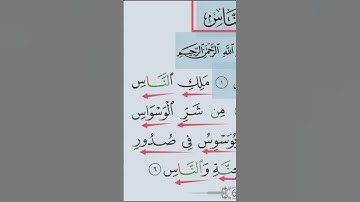 ٱلنَّاسِ
ٱللَّهِ ٱلرَّحْمَٰنِ ٱلرَّحِيمِ
١ مَلِكِ ٱلنَّاسِ
مِن شَرِّ ٱلْوَسْوَاسِ
يُوَسْوِسُ فِى صُدُورِ
وَٱلنَّاسِ ٦